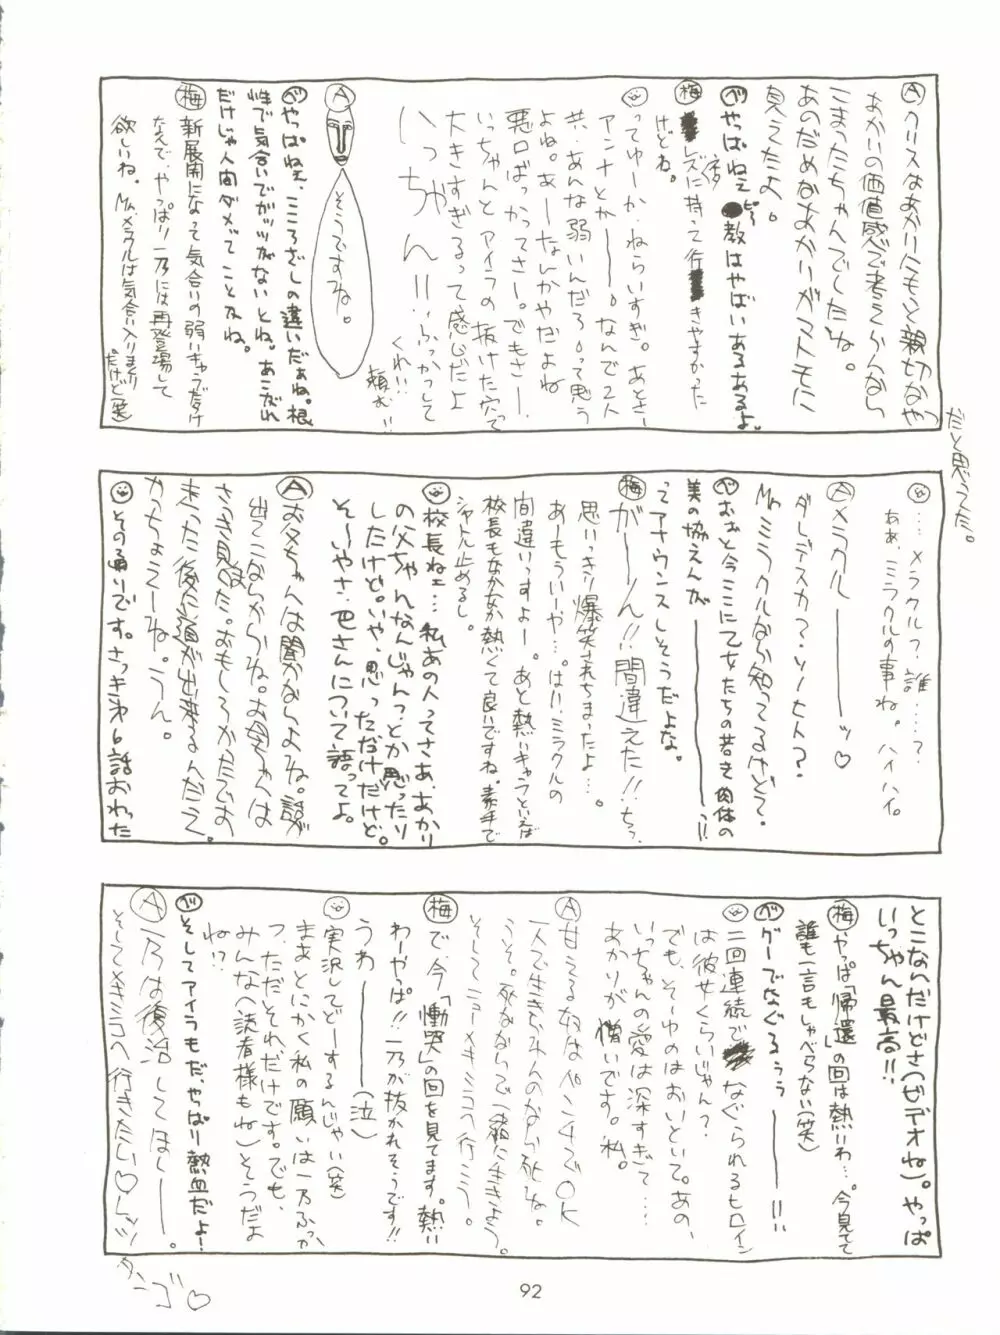 Ⓐクリスはあかりにもんと親切なやつ
だと思ってた。
あかりの価値感で考えらんなら
こまったちゃんでしたね。
あのだめなあかりがマトモに
見えたよ。
べやっぱねェ●教はやばいあるあるよ。
ピー
梅 ズに持って行きやすかった
けどね。
ってゆーか、ねらいすぎ。あとさー
アンナとかーー。なんで2人
共、あんな弱いんだろーって思う
よね。あーなんかやだよね
悪口ばっかってさー。でもさー、
いっちゃんとアイラの抜けた穴って
大きすぎるって感じだよ
いっちゃん!!ふっかつして
くれ!!
頼む!!
Ⓐ
そうですね。
べやっぱねェ、こころざしの違いだぁね。根
性で気合いでガッツがないとね。あこがれ
だけじゃ人間ダメってことよね。
梅 新展開になって気合いの弱いキャラだらけ
なんで、やっぱり一乃には再登場して
欲しいね、Mr.メラクルは気合い入りまくり
だけど(笑)
‥‥メラクル?誰‥‥?
ああ、ミラクルの事ね。ハイハイ。
Ⓐメラクルーーーーッ♡
ダレデスカ?ソノヒト?
Mr.ミラクルなら知ってるけどぐ。
べおぉと今ここに乙女たちの若き肉体の
美の協えんがーーーーー!!
ってアナウンスしそうだよな。
梅 がーーん!!間違えた!!ちっ、
思いっきり爆笑されちまったよ…。
あーもういーや…。はい、ミラクルの
間違いっすよー。あと熱いキャラといえば
校長もなかなか熱くて良いですね。素手で
シャトル止めるし。
校長ねェ…私あの人ってさあ、あかり
の父ちゃんなんじゃんっ?とか思ったり
したけど。いや、思っただけだけど。
そーいやさ、巴さんについて語ってよ。
Ⓐお父ちゃんは聞かないよね。話が
出てこないからね。お母ちゃんは
さっき見てた。おもしろかったですね
走った後に道が出来るんだって。
かっちょえーね。うん。
その通りです。さっき第6話おわった
とこなんだけどさ(ビデオね)。やっぱ
いっちゃん最高!!
梅 やっぱ「帰還」の回は熱いわ…。今見てて
誰も一言もしゃべらない(笑)
べグーでなぐるぅぅーーーー!!
二回連続でなぐられるヒロイン
は彼女くらいじゃん?
でも、そーゆのはおいといて。あの、
いっちゃんの愛は深すぎて‥‥
あかりが憎いです。私。
Ⓐ甘えるな奴はパンチでOK
一人で生きらんのなら死ね。
うそ。死なないで一緒に生きよう。
そしてニューメキシコへ行こう。
梅 で、今「慟哭」の回を見てます。熱い
わーやっぱ!!一乃が抜かれそうです!!
うわーーーー(泣)
実況してどーするんじゃい(笑)
まあとにかく私の願いは一乃ふっか
つ、ただそれだけです。でも、
みんな(読者様もね)そうだよ
ね!?
べそしてアイラもだ、やっぱり熱血だよ!
Ⓐ一乃は復活してほしーーー。
そしてメキシコへ行きたい♡レッツ
ゴ♡
92